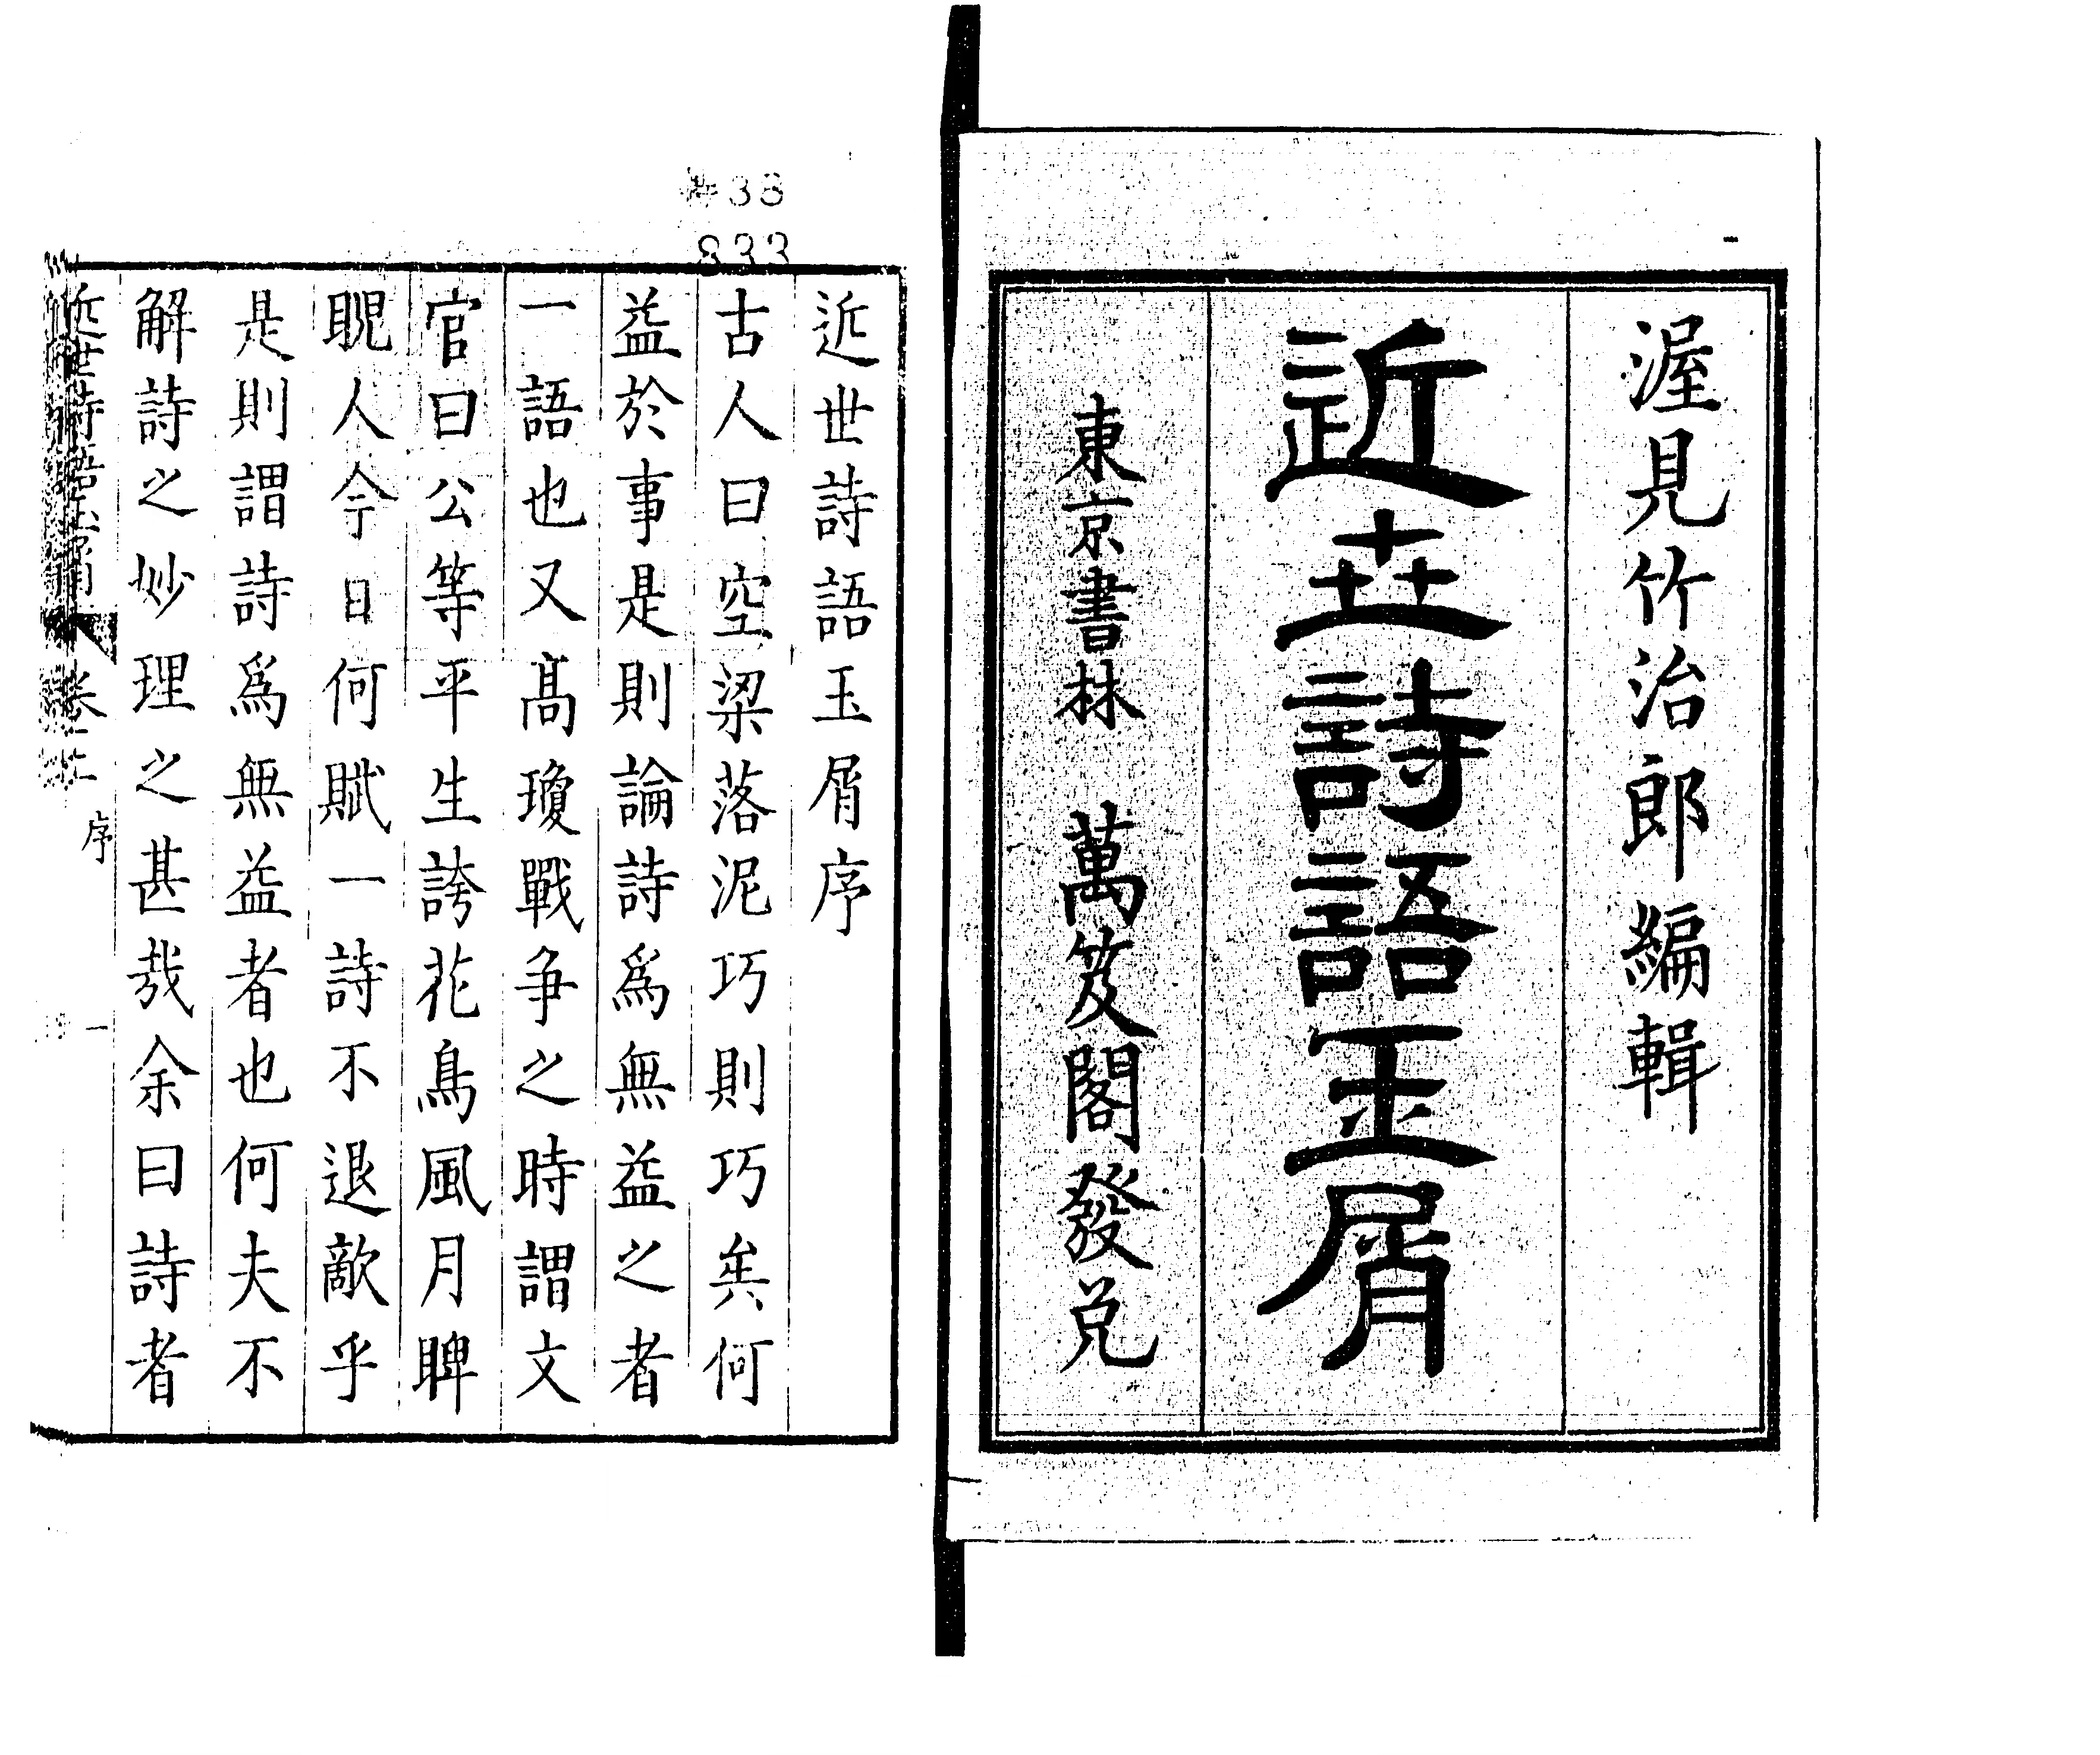 渥見竹治郎編輯
近世詩語玉屑
東京書林　萬笈閣發兌
特38
833
近世詩語玉屑序
古人曰空梁落泥巧則巧矣何
益於事是則論詩爲無益之者
一語也又髙瓊戰争之時謂文
官曰公等平生誇花鳥風月睥
睨人今日何賦一詩不退敵乎
是則謂詩爲無益者也何夫不
解詩之妙理之甚哉余曰詩者
近世詩語玉屑 卷之上 序 一